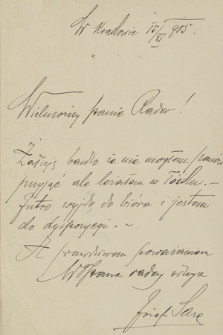 W Krakowie 15/XI 905.
Wielmożny Panie Radco!
Żałuję bardzo że nie mogłem panów
przyjąć ale leżałem w łóżku. —
Jutro wyjdę do biura i jestem
do dyspozycyi. —
Z prawdziwem poważaniem
WPana radcy sługa
Józef Sare